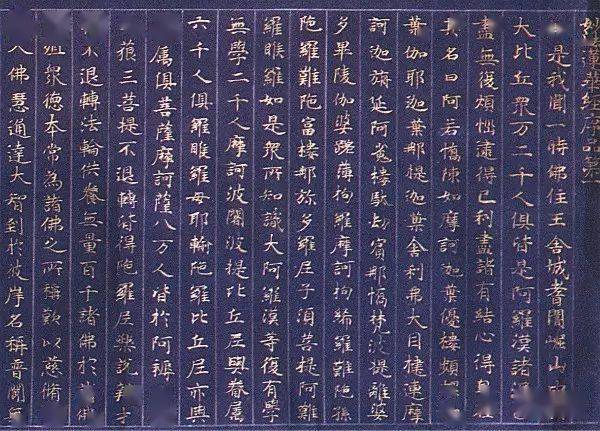 妙法蓮華経序品第一
是我聞一時佛住王舍城耆闍崛山中
大比丘衆万二千人俱皆是阿羅漢諸漏已
盡無復煩惱逮得已利盡諸有結心得自在
其名曰阿若憍陳如摩訶迦葉優樓頻螺
葉伽耶迦葉那提迦葉舍利弗大目揵連摩
訶迦旃延阿㝹樓馱劫賓那憍梵波提離婆
多畢陵伽婆蹉薄拘羅摩訶拘絺羅難陀孫
陀羅難陀富樓那弥多羅尼子須菩提阿難
羅睺羅如是衆所知識大阿羅漢等復有學
無學二千人摩訶波闍波提比丘尼與眷屬
六千人俱羅睺羅母耶輸陀羅比丘尼亦與
屬俱菩薩摩訶薩八万人皆於阿耨
藐三菩提不退轉皆得陀羅尼樂說辯才
不退轉法輪供養無量百千諸佛於諸佛
殖衆德本常為諸佛之所稱歎以慈脩
入佛慧通達大智到於彼岸名稱普聞無